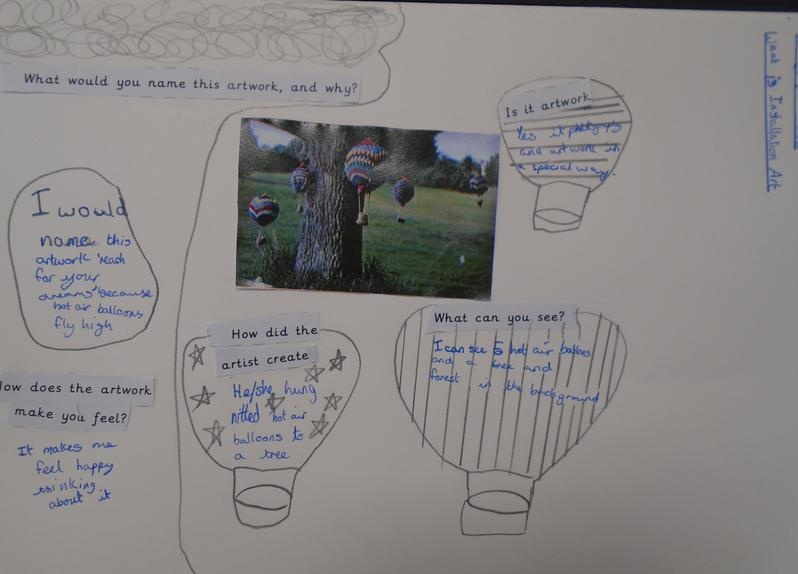 What is Installation Art
What would you name this artwork, and why?
I would
name this
artwork 'reach
for your
dreams' because
hot air balloons
fly high
How does the artwork
make you feel?
It makes me
feel happy
thinking
about it
How did the
artist create
He/she hung
nitted hot air
balloons to
a tree
Is it artwork
Yes it photography
and artwork in
a special way.
What can you see?
I can see 5 hot air balloons
and a tree and
forest in the background